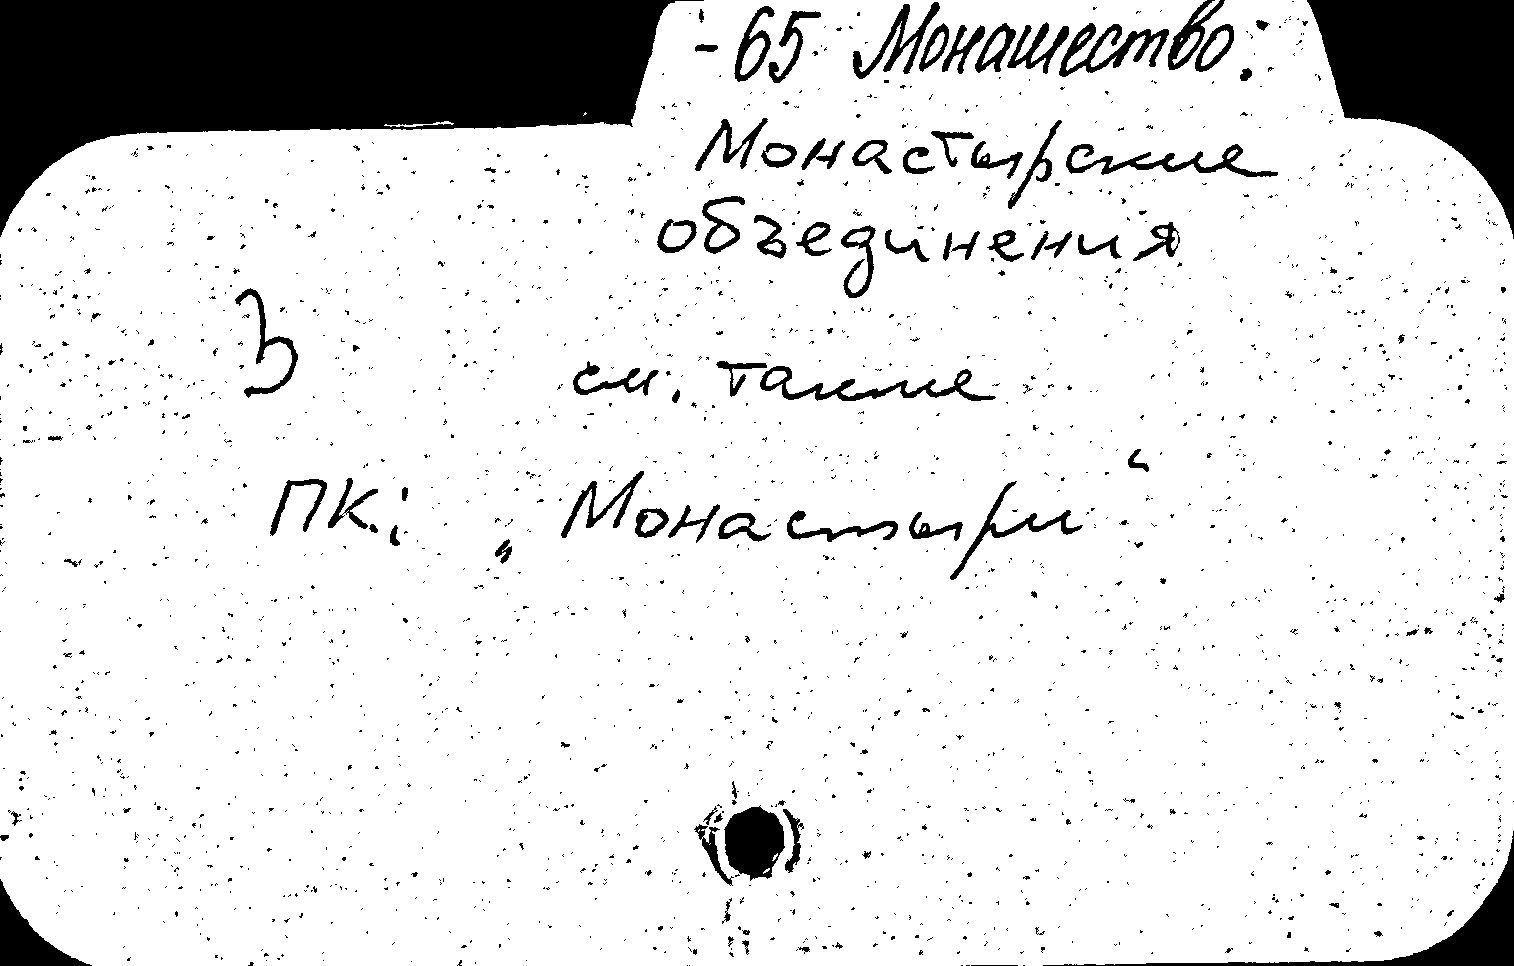 -65 Монашество:
Монастырские
объединения
З см. также
ПК: „Монастыри“